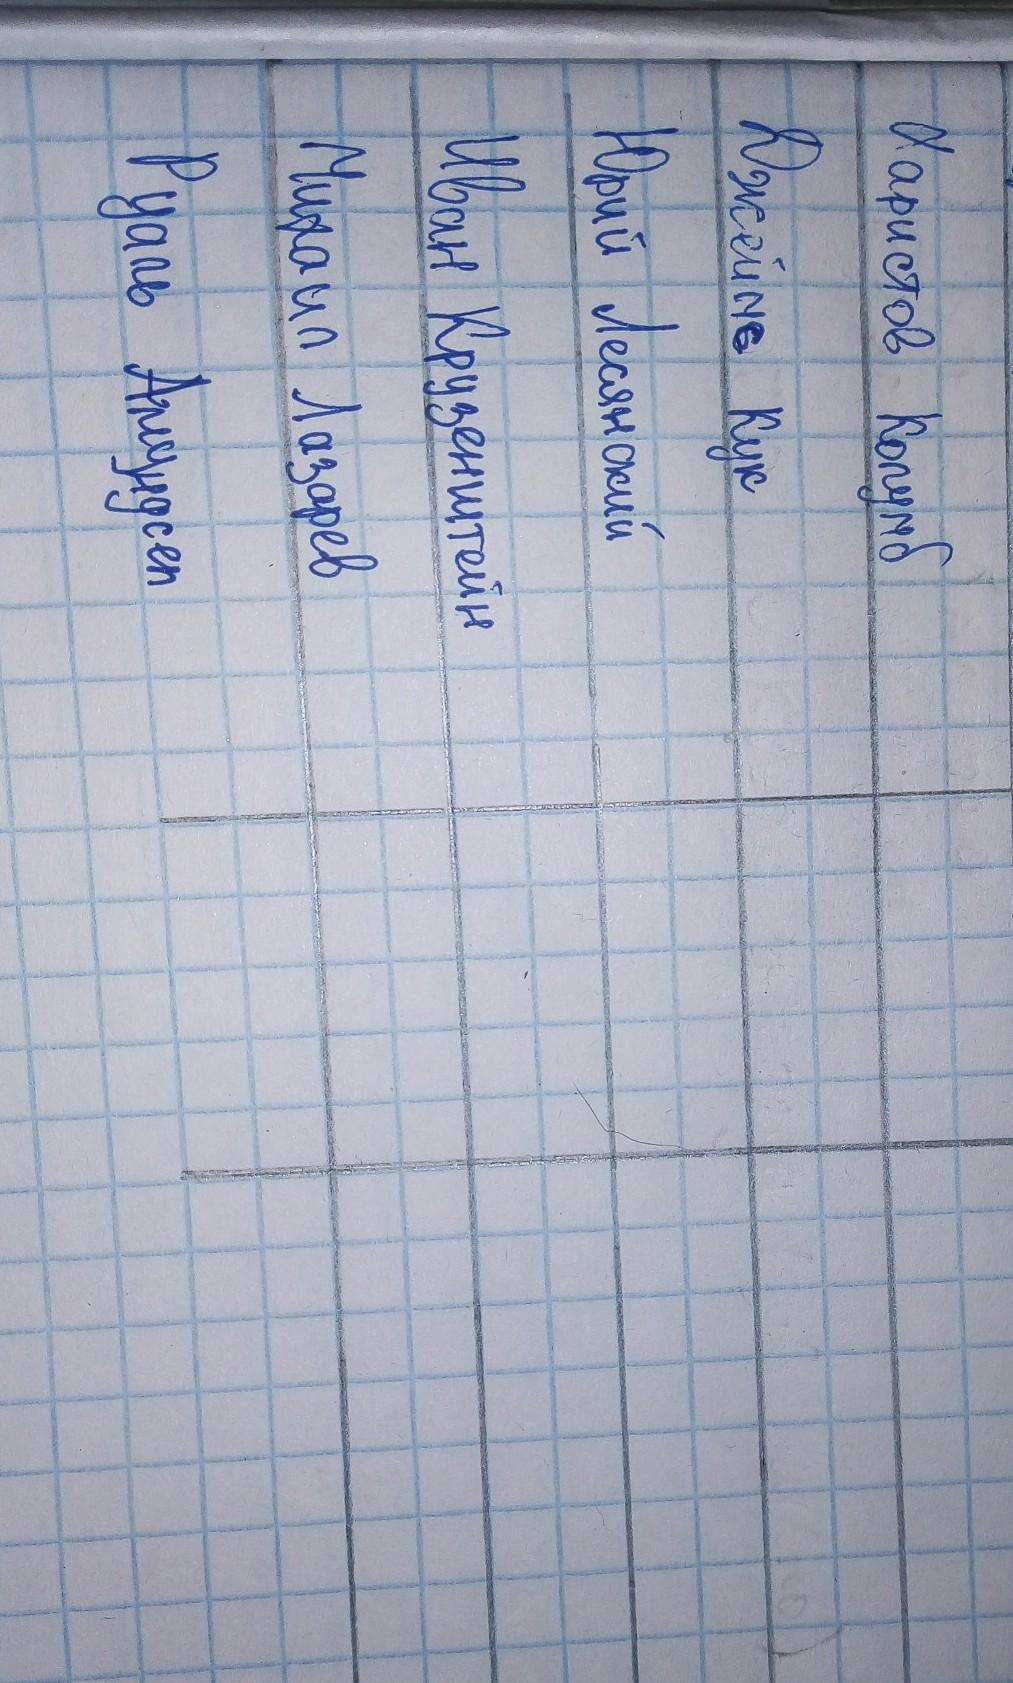 Харистов Колумб
Джеймс Кук
Юрий Лесянский
Иван Крузенштейн
Михаил Лазарев
Руаль Амундсен